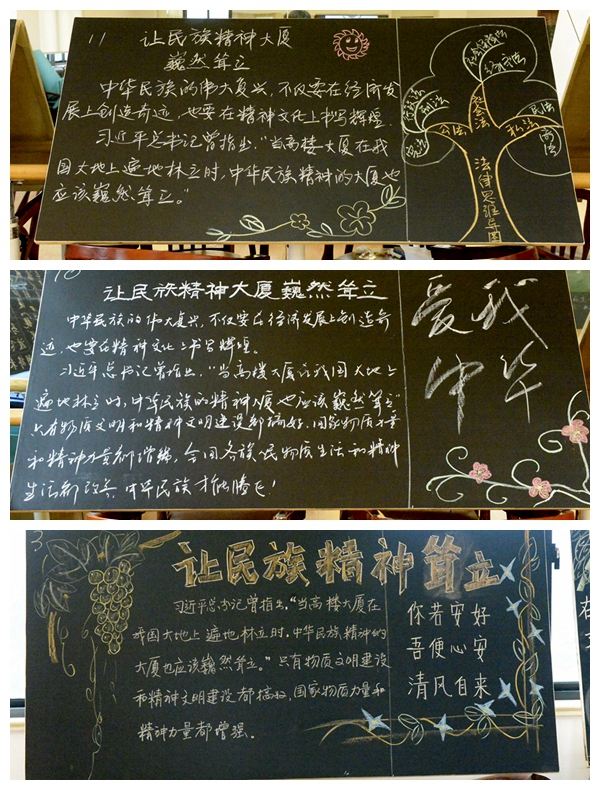 11
让民族精神大厦
巍然耸立
中华民族的伟大复兴,不仅要在经济发
展上创造奇迹,也要在精神文化上书写辉煌.
习近平总书记曾指出:"当高楼大厦在我
国大地上遍地林立时,中华民族精神的大厦也
应该巍然耸立。"
社会法
公法
私法
民法
商法
法律思维导图
让民族精神大厦巍然耸立
中华民族的伟大复兴,不仅要在经济发展上创造奇
迹,也要在精神文化上书写辉煌。
习近平总书记曾指出,"当高楼大厦在我国大地上
遍地林立时,中华民族的精神大厦也应该巍然耸立"
只有物质文明和精神文明建设都搞好,国家物质力量
和精神力量都增强,全国各族人民物质生活和精神
生活都改善,中华民族才能腾飞!
爱我
中华
3.
让民族精神耸立
习近平总书记曾指出,"当高楼大厦在
我国大地上遍地林立时,中华民族精神的
大厦也应该巍然耸立。"只有物质文明建设
和精神文明建设都搞好,国家物质力量和
精神力量都增强.
你若安好
吾便心安
清风自来